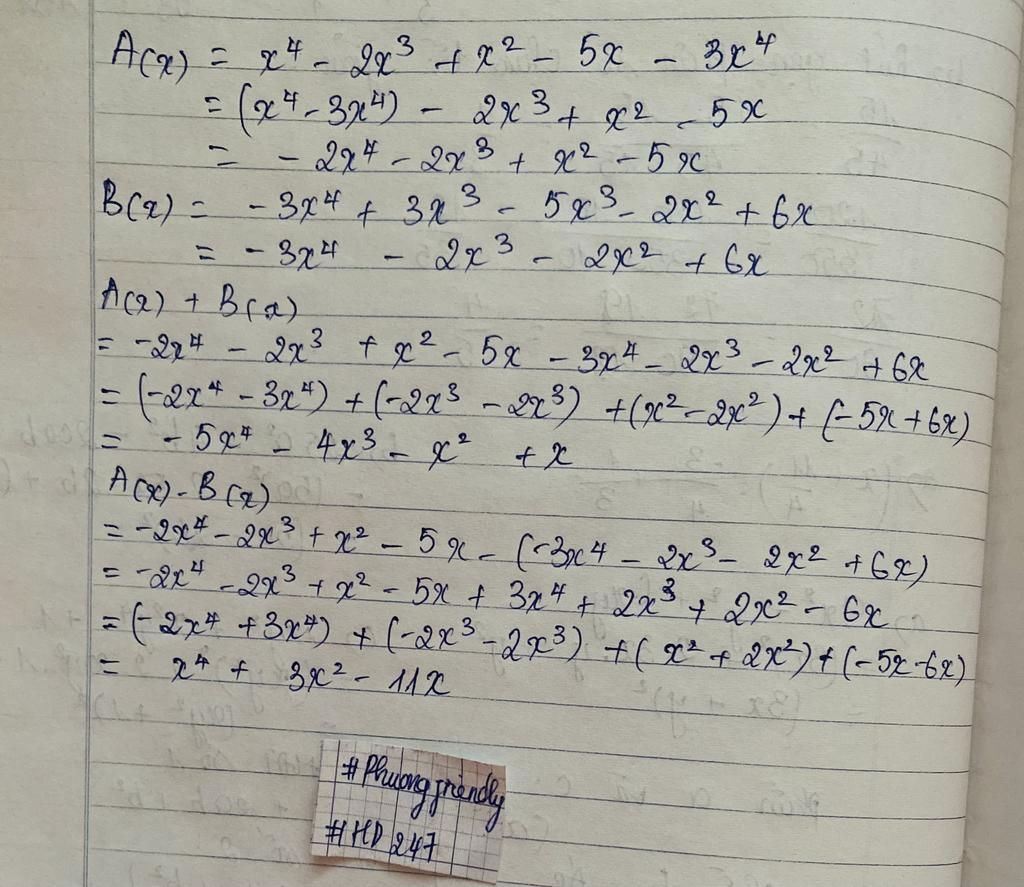 A(x) = x⁴ - 2x³ + x² - 5x - 3x⁴
= (x⁴ - 3x⁴) - 2x³ + x² - 5x
= - 2x⁴ - 2x³ + x² - 5x
B(x) = - 3x⁴ + 3x³ - 5x³ - 2x² + 6x
= - 3x⁴ - 2x³ - 2x² + 6x
A(x) + B(x)
= -2x⁴ - 2x³ + x² - 5x - 3x⁴ - 2x³ - 2x² + 6x
= (-2x⁴ - 3x⁴) + (-2x³ - 2x³) + (x² - 2x²) + (-5x + 6x)
= - 5x⁴ - 4x³ - x² + x
A(x) - B(x)
= -2x⁴ - 2x³ + x² - 5x - (-3x⁴ - 2x³ - 2x² + 6x)
= -2x⁴ - 2x³ + x² - 5x + 3x⁴ + 2x³ + 2x² - 6x
= (-2x⁴ + 3x⁴) + (-2x³ - 2x³) + (x² + 2x²) + (-5x - 6x)
= x⁴ + 3x² - 11x
#Phuongfriendly
#HD247